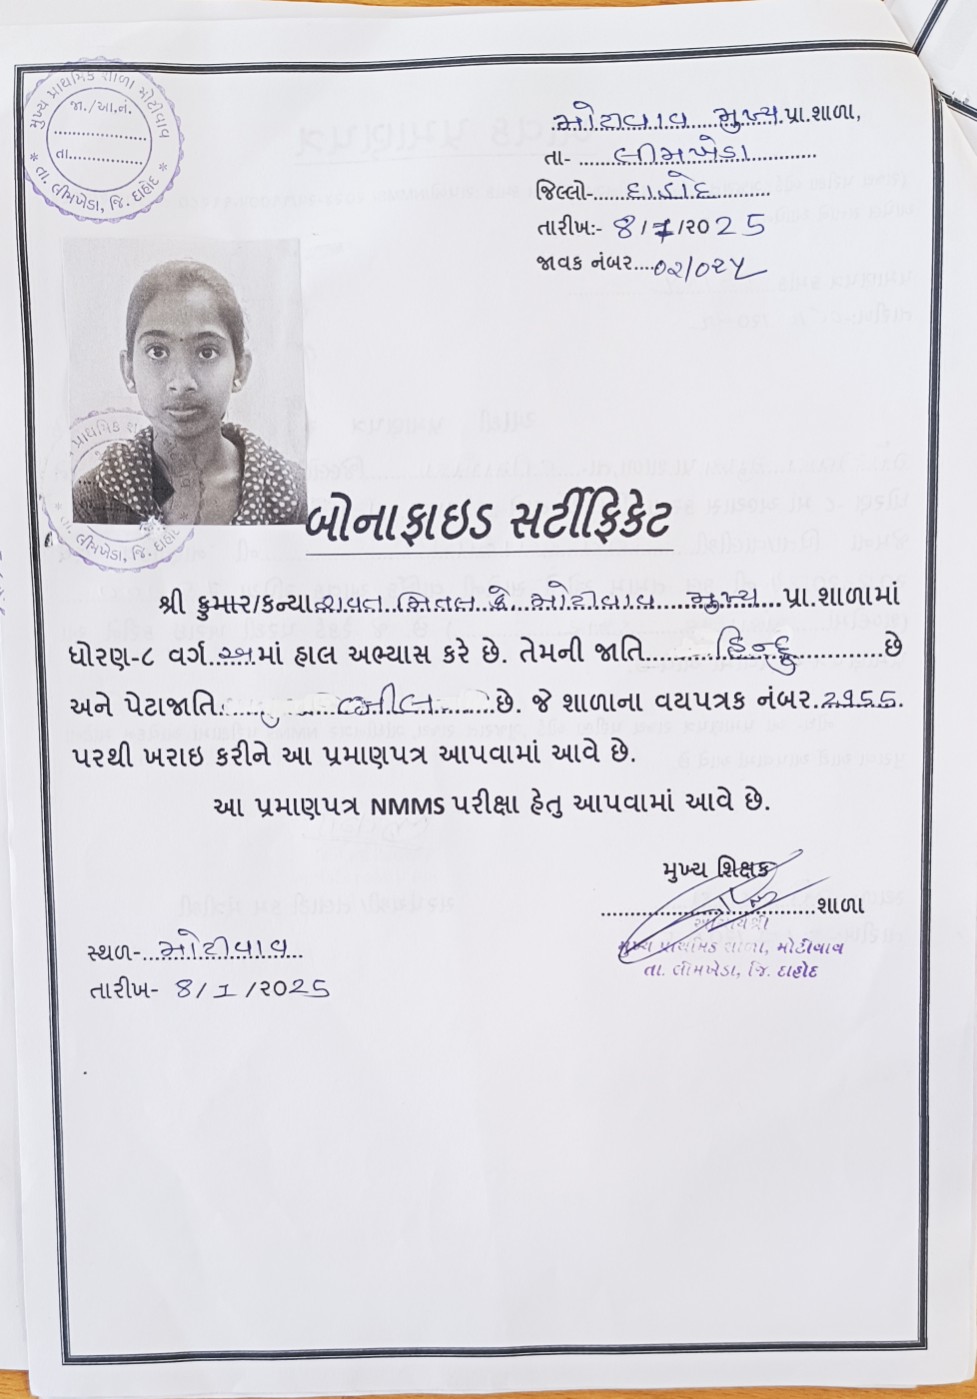 મુખ્ય પ્રાથમિક શાળા મોટીવાવ
જા./આ.નં.
તા.
* તા. લીમખેડા, જિ. દાહોદ *
મોટીવાવ મુખ્ય પ્રા.શાળા,
તા- લીમખેડા
જિલ્લો- દાહોદ
તારીખ:- 8/1/૨૦25
જાવક નંબર....૦૨/૦૨૫
બોનાફાઇડ સર્ટીફિકેટ
શ્રી કુમાર/કન્યા રાવત મિતલ મોટીવાવ મુખ્ય પ્રા.શાળામાં
ધોરણ-૮ વર્ગ અ માં હાલ અભ્યાસ કરે છે. તેમની જાતિ હિન્દુ છે
અને પેટાજાતિ ભીલ છે. જે શાળાના વયપત્રક નંબર
પરથી ખરાઇ કરીને આ પ્રમાણપત્ર આપવામાં આવે છે.
આ પ્રમાણપત્ર NMMS પરીક્ષા હેતુ આપવામાં આવે છે.
મુખ્ય શિક્ષક
શાળા
આચાર્યશ્રી
મુખ્ય પ્રાથમિક શાળા, મોટીવાવ
તા. લીમખેડા, જિ. દાહોદ
સ્થળ- મોટીવાવ
તારીખ- 8/1/૨૦25